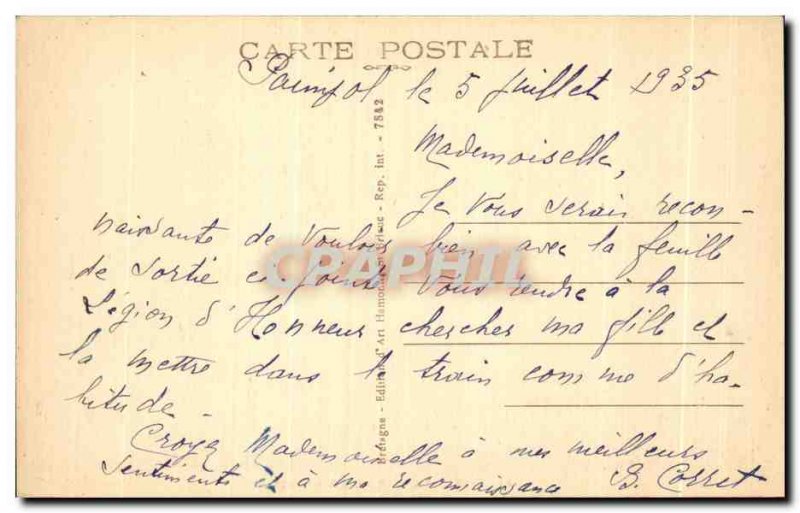 CARTE POSTALE
Paimpol le 5 Juillet 1935
Mademoiselle,
Je Vous serais recon-
naissante de Vouloir bien avec la feuille
de Sortie ci Jointe Vous rendre à la
Légion d'Honneur chercher ma fille et
la mettre dans le train comme d'ha-
bitude.
Croyez Mademoiselle à mes meilleurs
Sentiments et à ma reconnaissance B. Corret
Bretagne - Edition d'Art Hamonic, Saint-Brieuc - Rep. int. - 7542
CPAPHIL